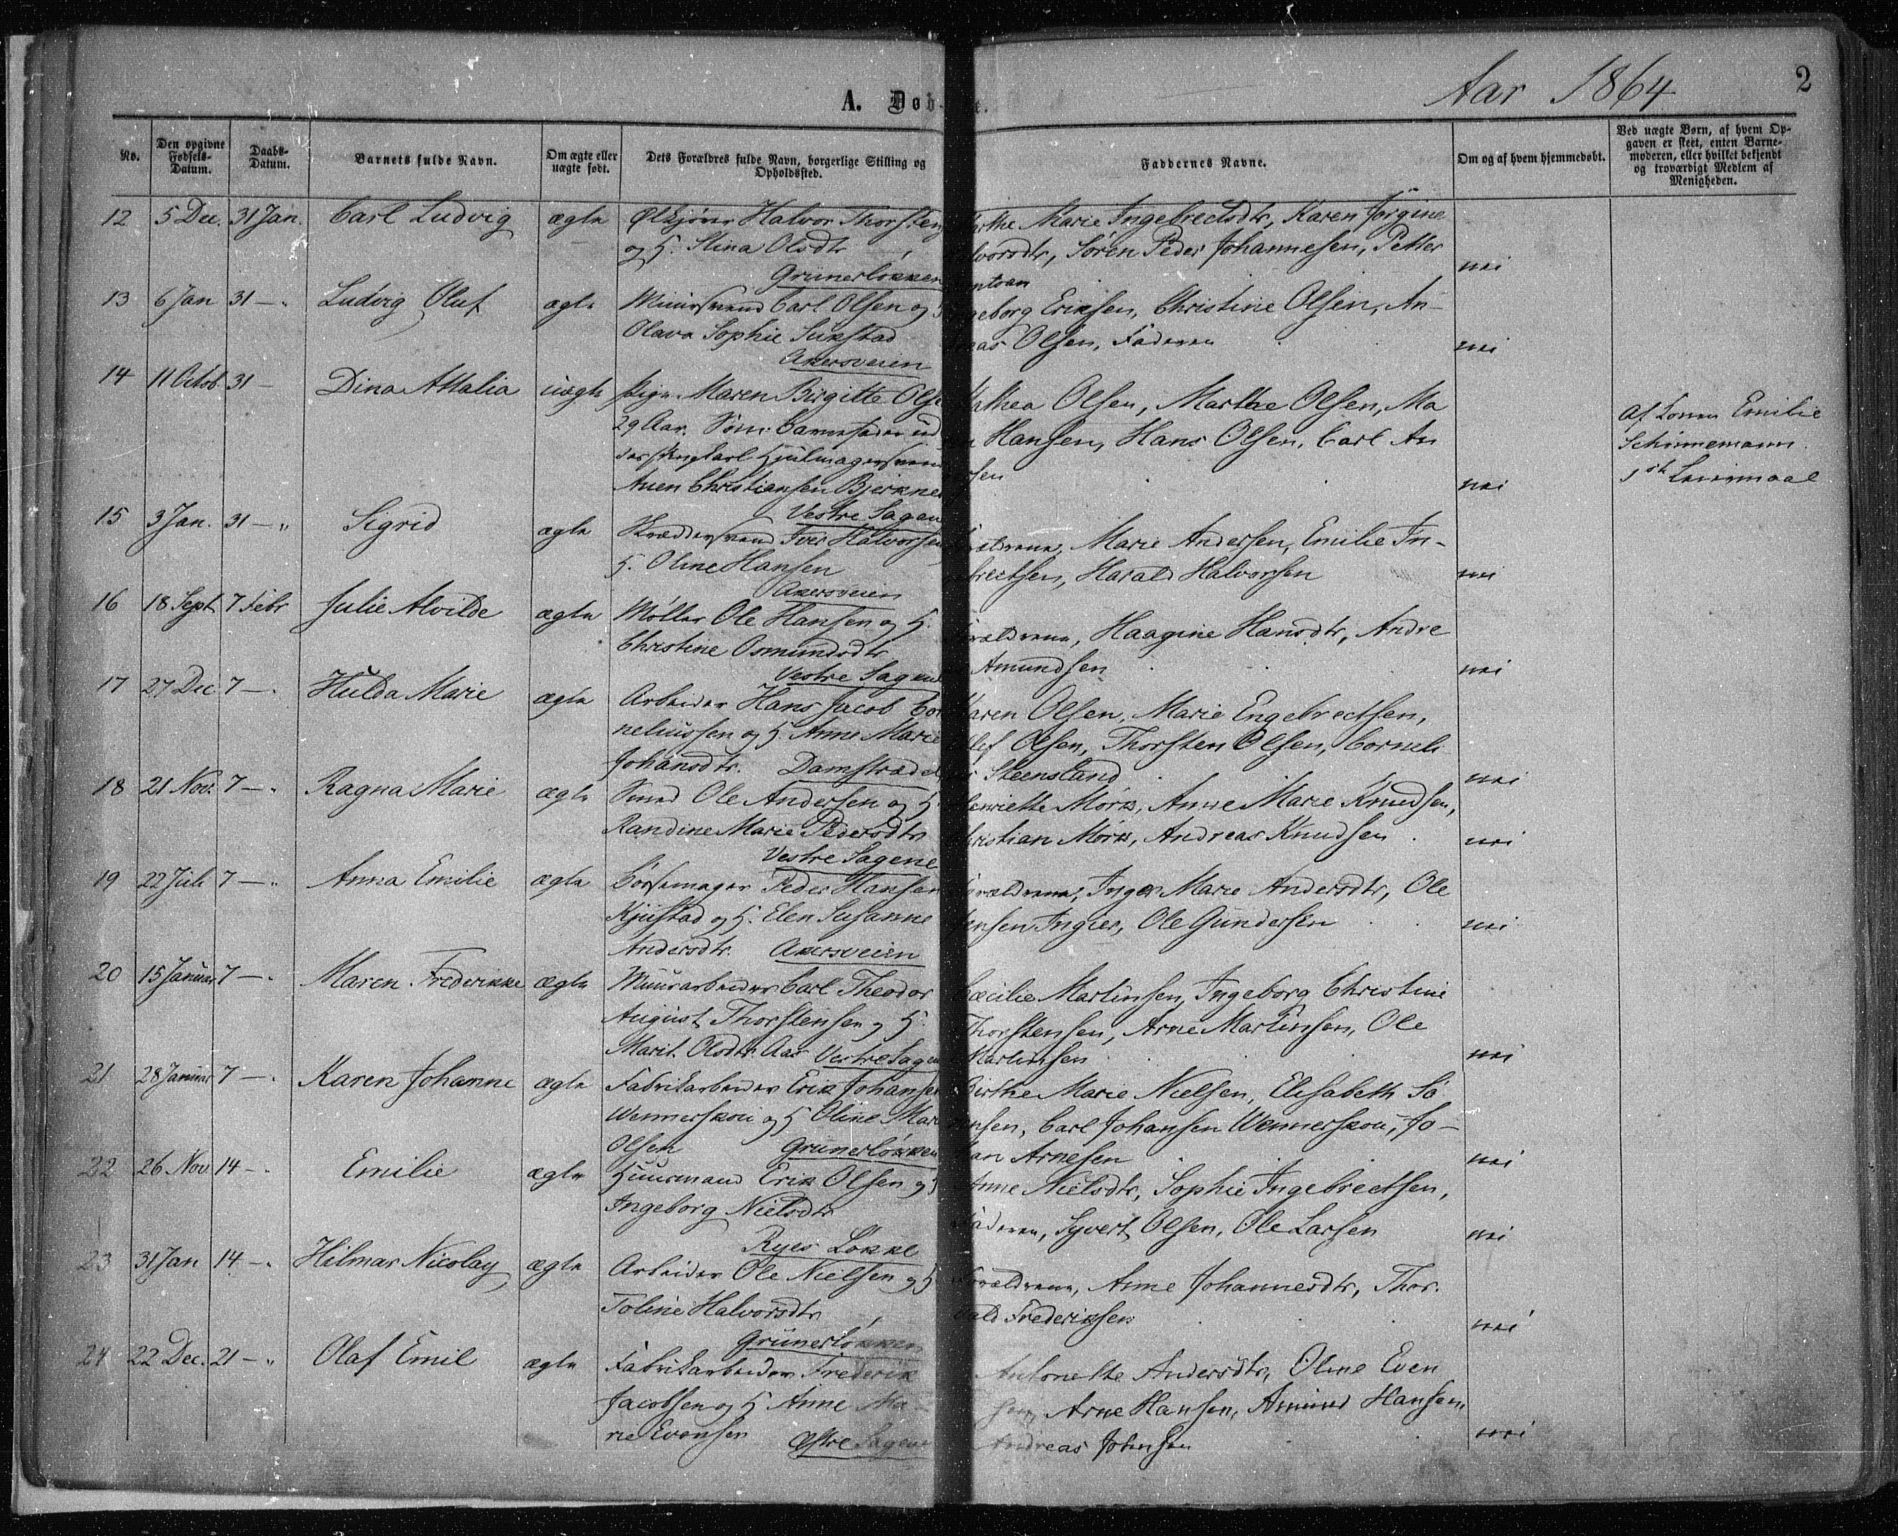 Aar 1864
2
A. Døb-
No.
Den opgivne Fødsels-Datum.
Daabs-Datum.
Barnets fulde Navn.
Om ægte eller uægte født.
Dets Forældres fulde Navn, borgerlige Stilling og Opholdssted.
Faddernes Navne.
Om og af hvem hjemmedøbt.
Ved uægte Børn, af hvem Opgaven er skeet, enten Barnemoderen, eller hvilket bekjendt og troværdigt Medlem af Menigheden.
12 5 Dec. 31 Jan. Carl Ludvig ægte Ølkjører Halvor Thorsten
og H. Stina Olsdtr
Grünerløkken
Marie Ingebrectsdtr, Karen Jørgine
Søren Peder Johannesen, Petter
nei
13 6 Jan 31 — Ludvig Oluf ægte Muursvend Carl Olsen og H
Olava Sophie
Akersveien
Eriksen, Christine Olsen, An-
Olsen, Faderen
nei
14 11 Octob 31 — Dina Attalia uægte Pige Maren Birgitte Olse
29 Aar.
Christiansen Bjerkne
Vestre Sagen
Mathea Olsen, Marthe Olsen, Ma
Hansen, Hans Olsen, Carl An
nei
af Emilie
Schinnemann
1ste Leiermaal
15 3 Jan. 31 — Sigrid ægte Skræddersvend Iver Halvorsen
H. Oline Hansen
Akersveien
Marie Andersen, Emilie In-
brectsen, Harald Halvorsen
nei
16 18 Sept 7 Febr Julie Alvilde ægte Møller Ole Hansen og H.
Christine Osmundsdtr
Vestre Sagen
Haagine Hansdtr, Andre
Amundsen
nei
17 27 Dec 7 — Hulda Marie ægte Arbeider Hans Jacob Cor
neliussen og H Anne Marie
Johansdtr. Damstræde
Karen Olsen, Marie Engebrectsen,
Olsen, Thorsten Olsen, Corneli
Steensland
nei
18 21 Nov. 7 — Ragna Marie ægte Smed Ole Andersen og H
Randine Marie Pedersdtr
Vestre Sagene
Henriette Mørk, Anne Marie Knudsen,
Christian Mørk, Andreas Knudsen
nei
19 22 Juli 7 — Anna Emilie ægte Børsemager Peder Hansen
Kjustad og H. Elen Susanne
Andersdtr. Akersveien
Forældrene, Inger Marie Andersdtr, Ole
Jensen Ingier, Ole Gundersen
nei
20 15 Januar 7 — Maren Frederikke ægte Muurarbeider Carl Theodor
August Thorstensen og H.
Marit Olsdtr Aas Vestre Sagen
Cæcilie Martinsen, Ingeborg Christine
Thorstensen, Arne Martinsen, Ole
Martinsen
nei
21 28 Januar 7 — Karen Johanne ægte Fabrikarbeider Erik Johansen
Wennerskou og H Oline Mar
Olsen Grünerløkken
Birthe Marie Nielsen, Elisabeth Sø
rensen, Carl Johansen Wennerskou, Jo-
han Arnesen
nei
22 26 Nov 14 — Emilie ægte Huusmand Erik Olsen og H
Ingeborg Nielsdtr
Ryes Løkke
Anne Nielsdtr, Sophie Ingebrectsen,
Faderen, Syvert Olsen, Ole Larsen
nei
23 31 Jan 14 — Hilmar Nicolay ægte Arbeider Ole Nielsen og H
Toline Halvorsdtr
Grünerløkken
Forældrene, Anne Johannesdtr, Thor-
vald Frederiksen
nei
24 22 Dec. 21 — Olaf Emil ægte Fabrikarbeider Frederik
Jacobsen og H Anne Ma-
rie Evensen Østre Sagene
Antonette Andersdtr, Oline Even
sen, Arne Hansen, Amund Hansen,
Andreas Johnsen
nei